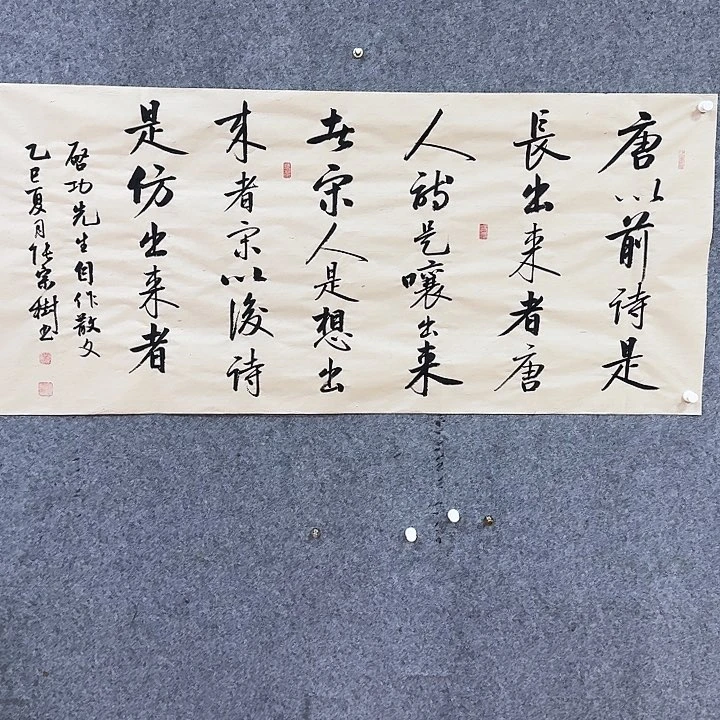 唐以前诗是
長出来者唐
人詩是嚷出来
者宋人是想出
来者宋以後诗
是仿出来者
启功先生自作散文
乙巳夏月张宗樹书